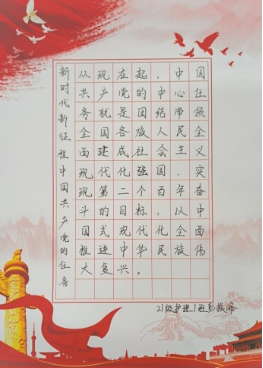 新时代新征程中国共产党的任务
从现在起，中国
共产党的中心任
务就是团结带领
全国各族人民全
面建成社会主义
现代化强国、实
现第二个百年奋
斗目标，以中
国式现代化全面
推进中华民族伟
大复兴。
21级护理1班